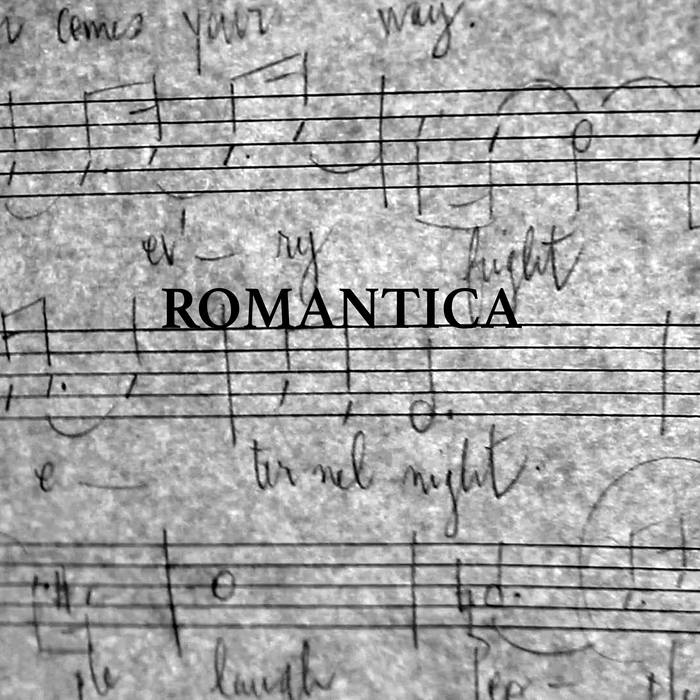 comes your way.
ev'- ry night
ROMANTICA
e - ter nel night.
laugh